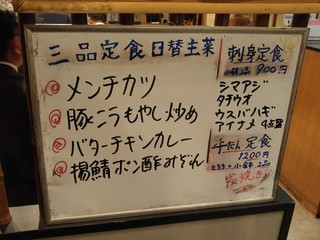 三品定食日替主菜
メンチカツ
豚こうもやし炒め
バターチキンカレー
揚鯖ポン酢みぞれ
刺身定食
900円
シマアジ
タチウオ
ウスバハギ
アイナメ 4点盛
牛たん定食
1200円
とろろ+小鉢
炭焼き